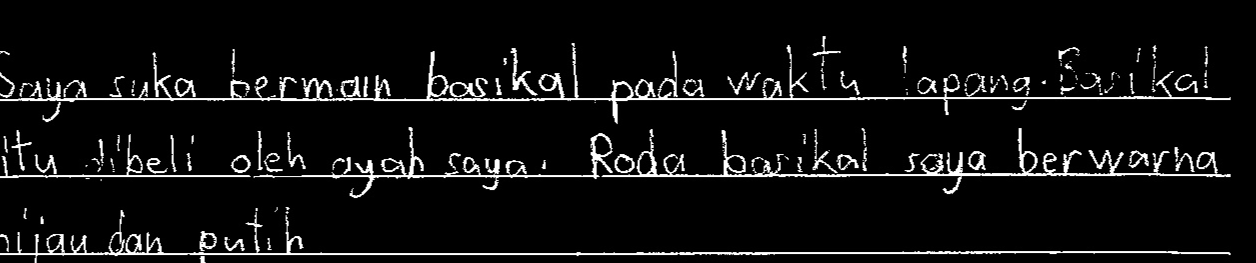 Saya suka bermain basikal pada waktu lapang. Basikal
itu dibeli oleh ayah saya. Roda basikal saya berwarna
hijau dan putih